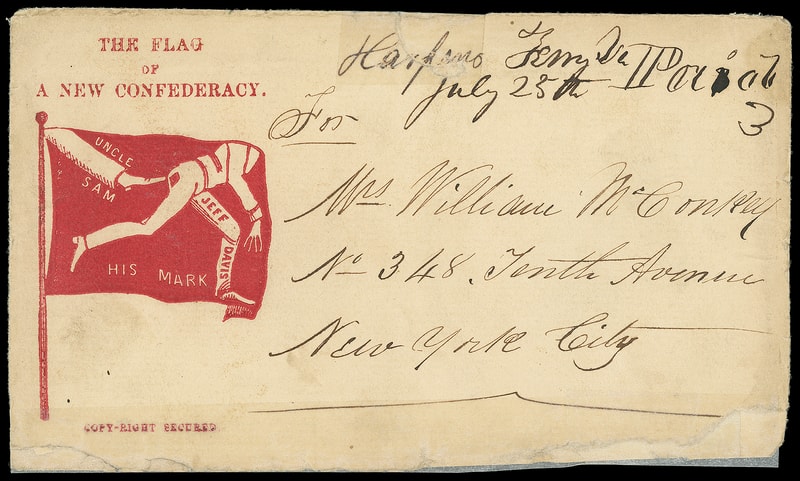 THE FLAG
OF
A NEW CONFEDERACY.
UNCLE
SAM
JEFF
DAVIS
HIS MARK
COPY-RIGHT SECURED
Harpers Ferry Va Paid
July 25th 3
For
Mrs William McConkey
No 348. Tenth Avenue
New York City